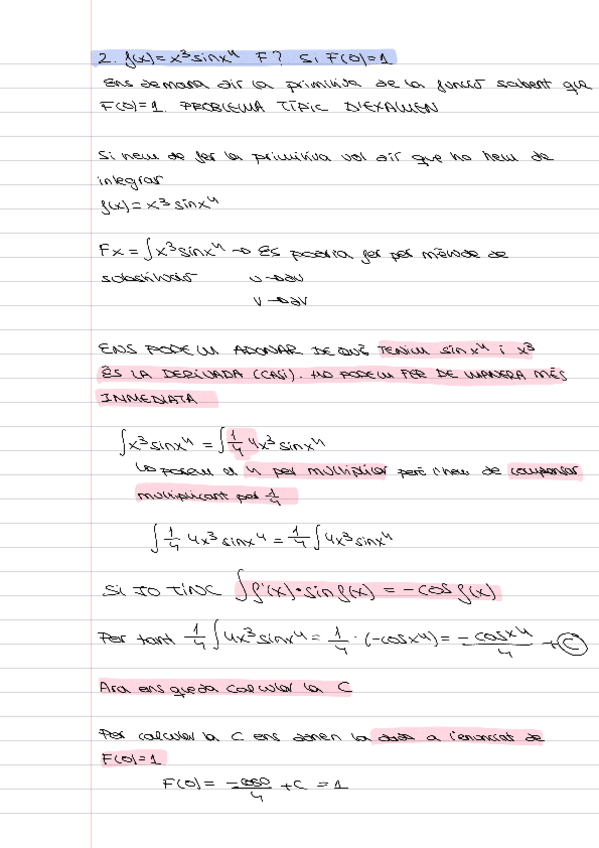 2. f(x)=x³sinx⁴ F? Si F(0)=1
Ens demana dir la primitiva de la funció sabent que
F(0)=1. PROBLEMA TÍPIC D'EXAMEN
Si hem de fer la primitiva vol dir que ho hem de
integrar
f(x)=x³sinx⁴
Fx=∫x³sinx⁴ → Es podria fer per mètode de
substitució u→du
v→dv
ENS PODEM ADONAR DE QUÈ TENIM sinx⁴ i x³
ÉS LA DERIVADA (CASI). HO PODEM FER DE MANERA MÉS
INMEDIATA
∫x³sinx⁴=∫1/4 4x³sinx⁴
↳ posem el 4 per multiplicar però l'hem de compensar
multiplicant per 1/4
∫1/4 4x³sinx⁴=1/4∫4x³sinx⁴
SI JO TINC ∫f'(x)·sinf(x)=-cosf(x)
Per tant 1/4∫4x³sinx⁴=1/4·(-cosx⁴)=-cosx⁴/4+C
Ara ens queda calcular la C
Per calcular la C ens donen la dada a l'enunciat de
F(0)=1
F(0)=-cos0/4+C=1